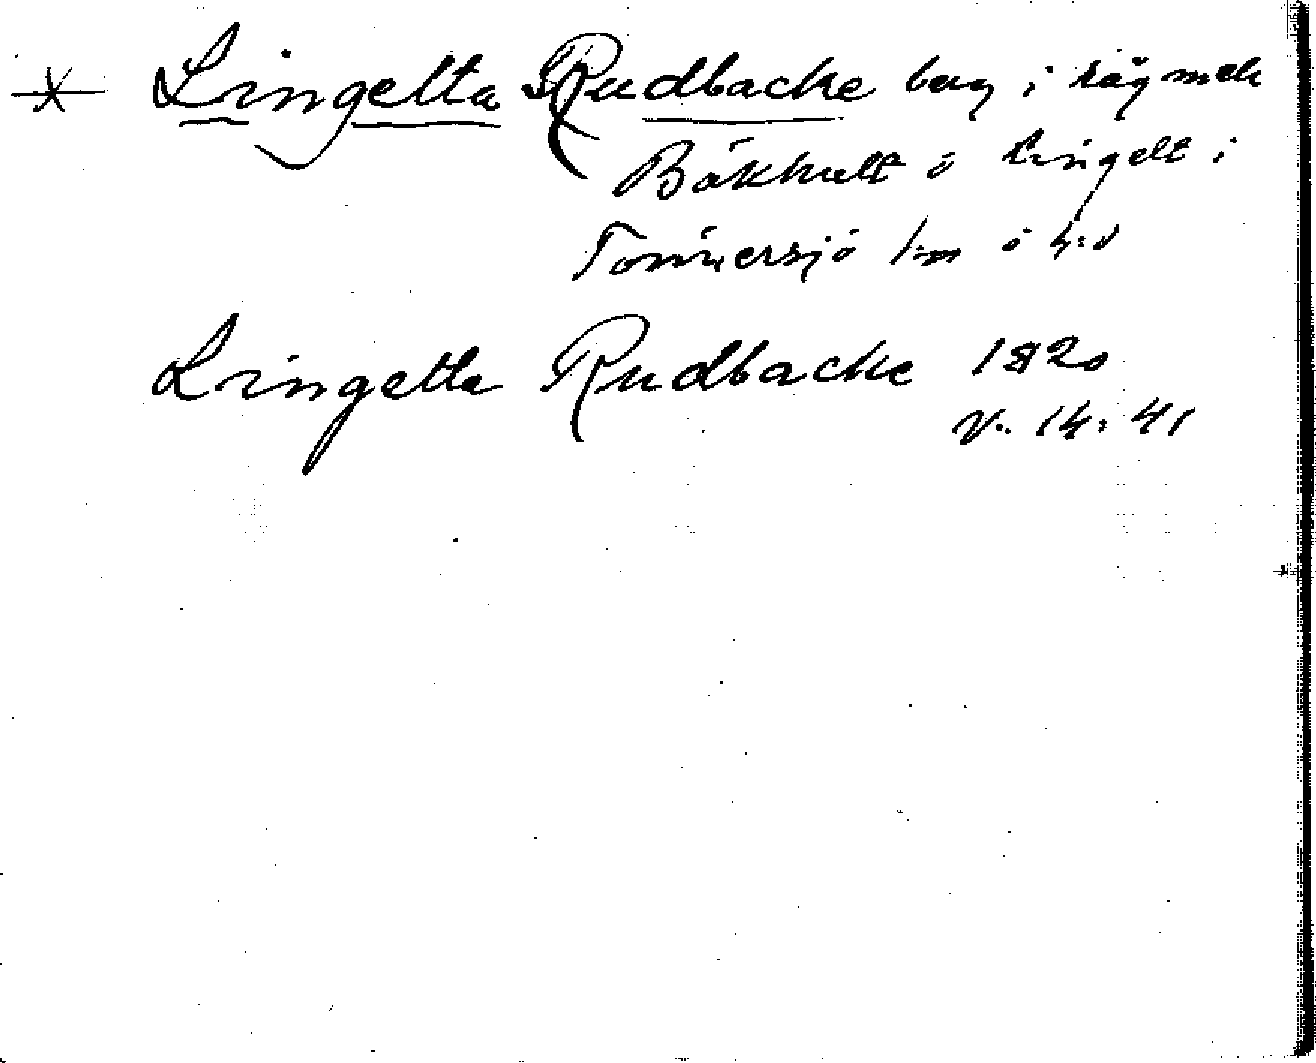 Lingelta Rudbacke berg i råg mell
Bökhult o Lingelt i
Tönnersjö s:n o h:d
Lingetta Rudbacke 1820
V. 14: 41